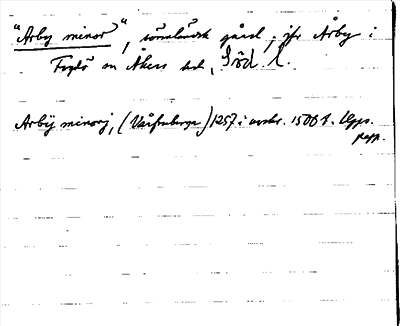 "Arby minor", sörmländsk gård, jfr Årby i
Fogdö sn Åkers hd, Söd. l.
Arbÿ minorj, (Vårfruberga) 1257 i avskr. 1500 t. Upps.
papp.